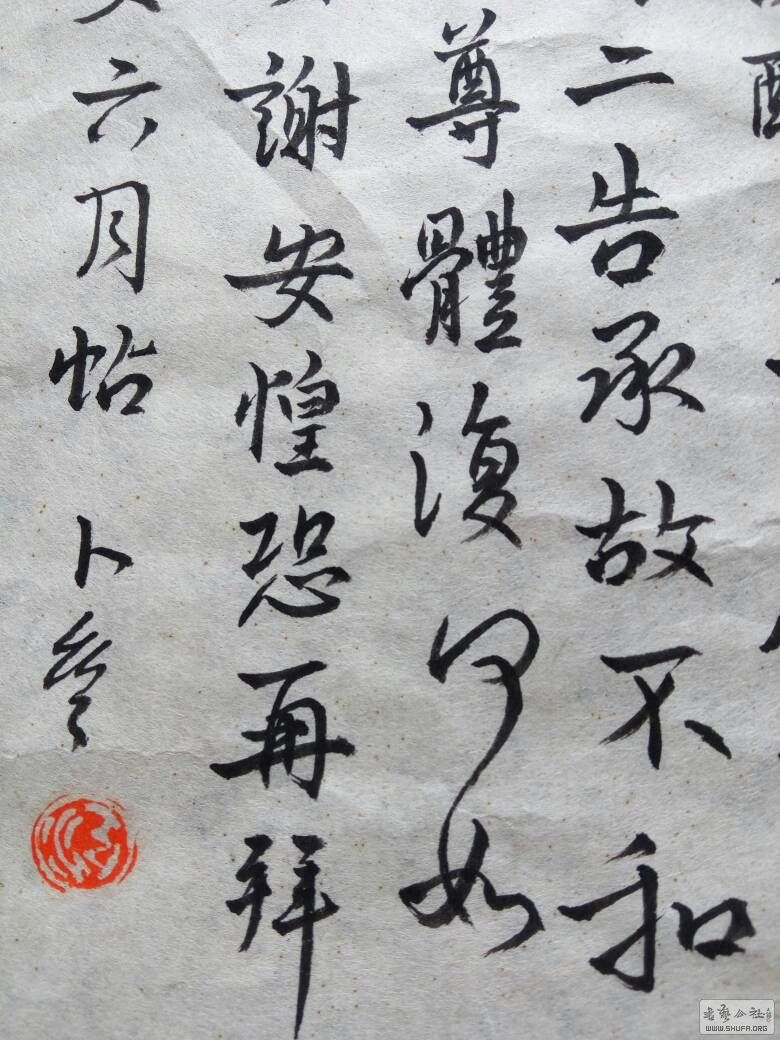 二告承故不和
尊體復何如
謝安惶恐再拜
六月帖 卜
書藝公社
WWW.SHUFA.ORG